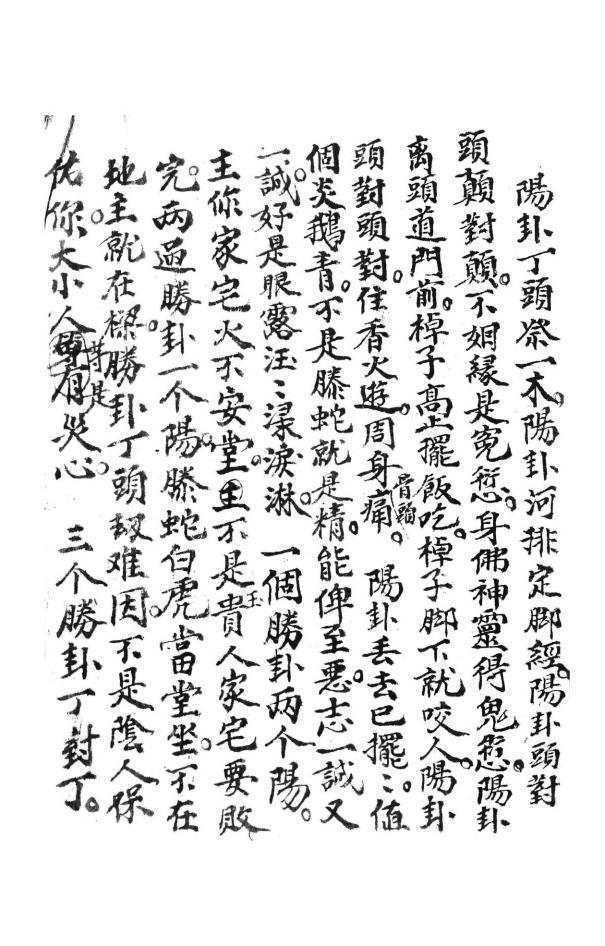 陽卦丁頭祭一木。陽卦河排定脚經。陽卦頭對
頭顛對顛。不姻縁是寃愆。身佛神靈得鬼愆。陽卦
离頭道門前。棹子髙上擺飯吃。棹子脚下就咬人。陽卦
頭對頭對。住香火遊。周身骨頭痛。陽卦丢去已擺〻值
個炎鵝青。不是螣蛇就是精。能俾至悪志一誠又
一誠。好是眼露汪〻淚淋。一個勝卦兩个陽。
主你家宅火不安堂。主不是貴人家宅要敗
完。两過勝卦一个陽。螣蛇白虎當堂坐。不在
地主就在樑。勝卦丁頭刼难因。不是陰人保
佑你。大小人眷是有哭心。三个勝卦丁對丁。